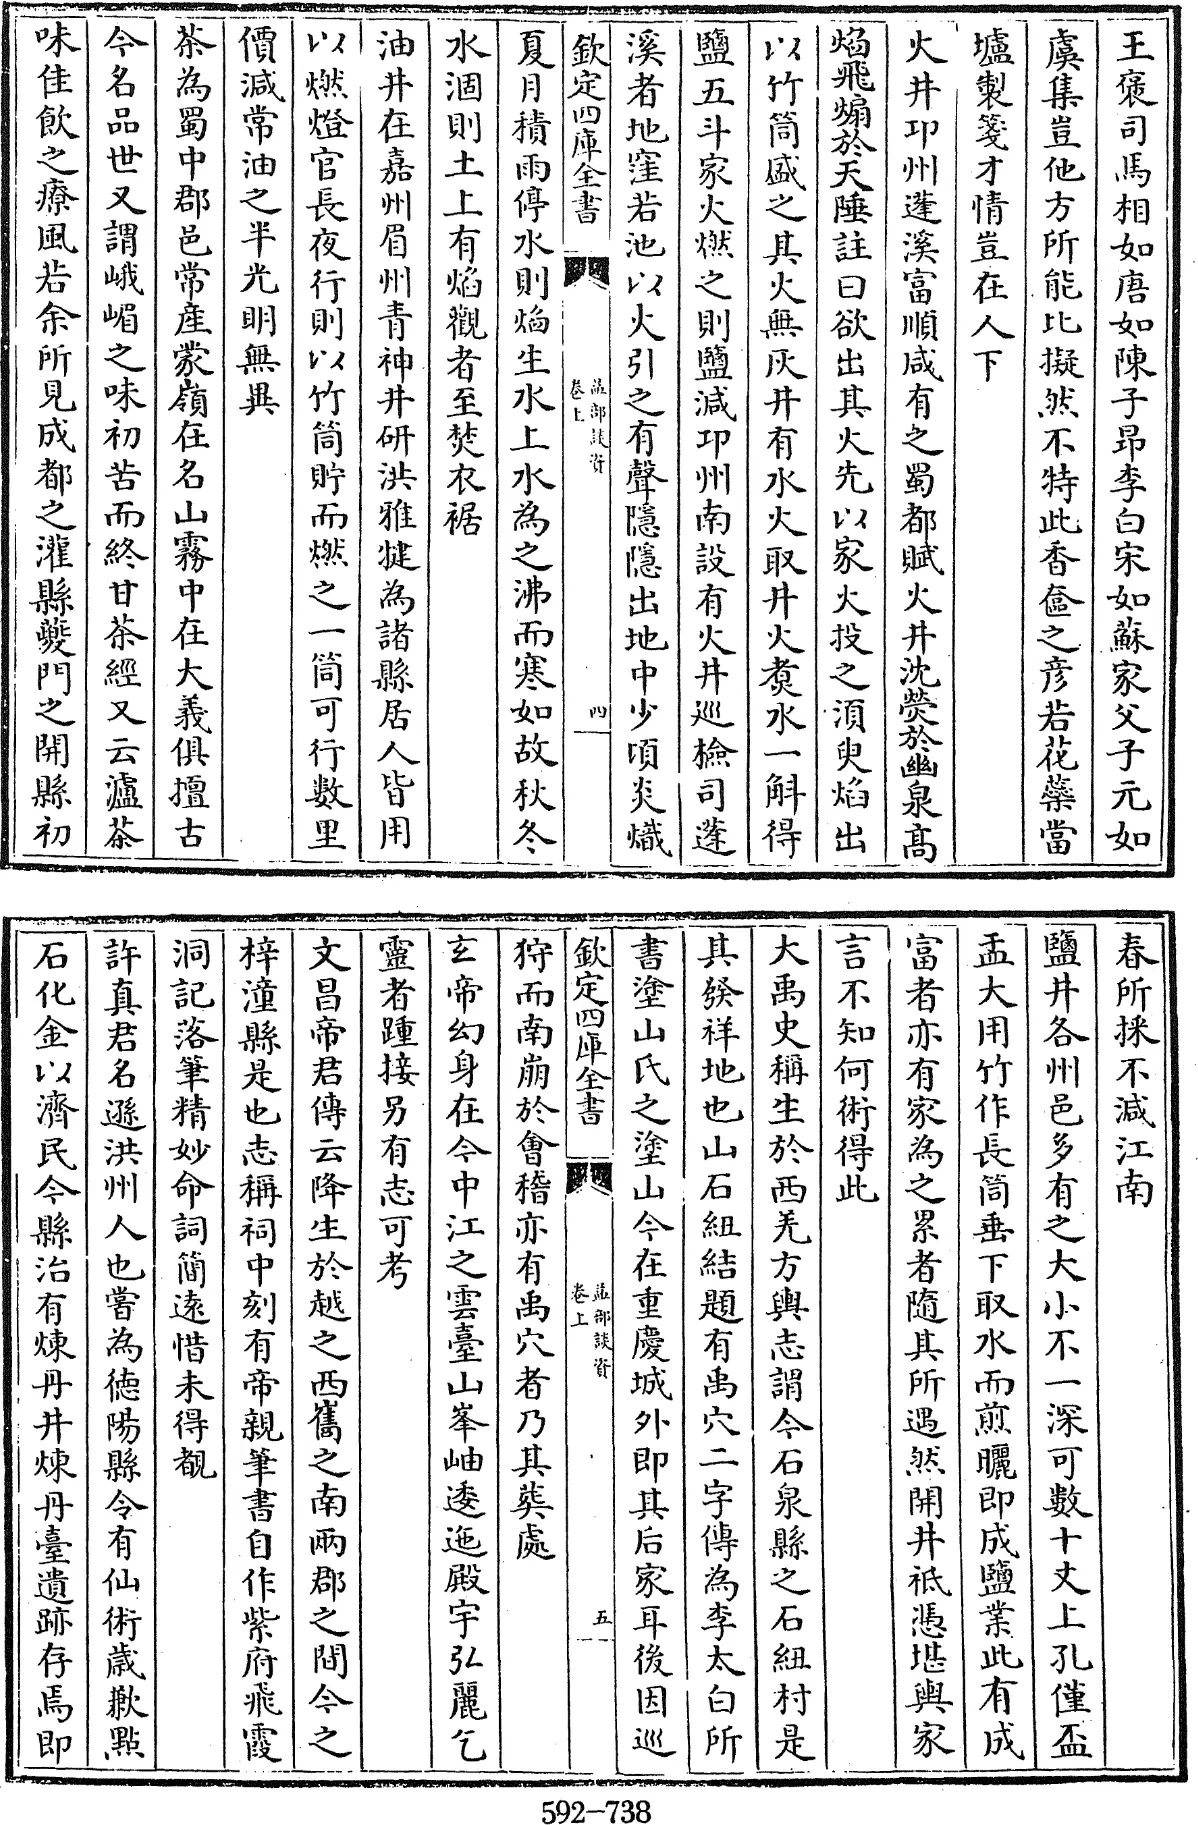 王褒司馬相如唐如陳子昂李白宋如蘇家父子元如
虞集豈他方所能比擬然不特此香奩之彦若花蘂當
壚製箋才情豈在人下
火井卭州蓬溪富順咸有之蜀都賦火井沈熒於幽泉高
焰飛煽於天陲註曰欲出其火先以家火投之湏臾焰出
以竹筒盛之其火無灰井有水火取井火煑水一斛得
鹽五斗家火燃之則鹽減卭州南設有火井廵檢司蓬
溪者地窪若池以火引之有聲隱隱出地中少頃炎熾
欽定四庫全書
益部談資
卷上
四
夏月積雨停水則焰生水上水為之沸而寒如故秋冬
水涸則土上有焰觀者至焚衣裾
油井在嘉州眉州青神井研洪雅犍為諸縣居人皆用
以燃燈官長夜行則以竹筒貯而燃之一筒可行數里
價減常油之半光明無異
茶為蜀中郡邑常産蒙嶺在名山霧中在大義俱擅古
今名品世又謂峨嵋之味初苦而終甘茶經又云瀘茶
味佳飲之療風若余所見成都之灌縣夔門之開縣初
春所採不減江南
鹽井各州邑多有之大小不一深可數十丈上孔僅盃
盂大用竹作長筒垂下取水而煎曬即成鹽業此有成
富者亦有家為之累者隨其所遇然開井祗憑堪輿家
言不知何術得此
大禹史稱生於西羌方輿志謂今石泉縣之石紐村是
其發祥地也山石紐結題有禹穴二字傳為李太白所
書塗山氏之塗山今在重慶城外即其后家耳後因廵
欽定四庫全書
益部談資
卷上
五
狩而南崩於會稽亦有禹穴者乃其葬處
玄帝幻身在今中江之雲臺山峯岫逶迤殿宇弘麗乞
靈者踵接另有志可考
文昌帝君傳云降生於越之西雟之南兩郡之間今之
梓潼縣是也志稱祠中刻有帝親筆書自作紫府飛霞
洞記落筆精妙命詞簡遠惜未得覩
許真君名遜洪州人也嘗為德陽縣令有仙術歲歉點
石化金以濟民今縣治有煉丹井煉丹臺遺跡存焉即
592-738